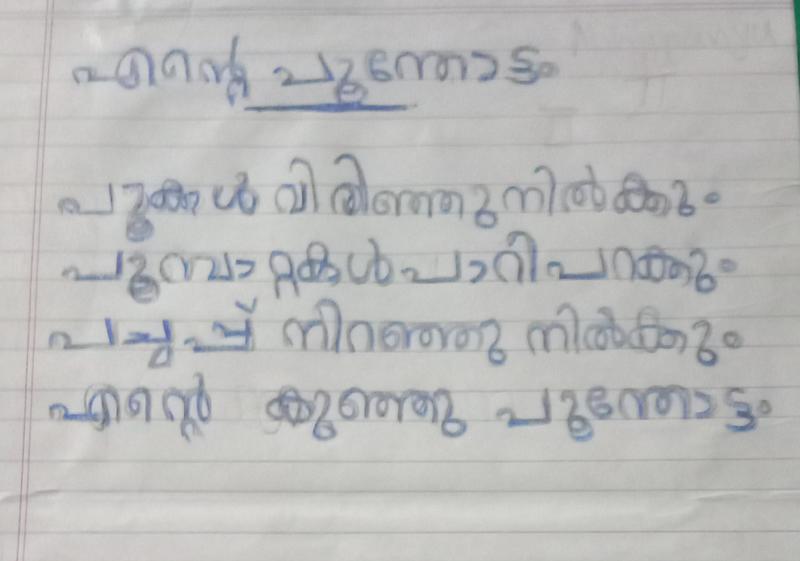 എന്റെ പൂന്തോട്ടം
പൂക്കൾ വിരിഞ്ഞു നിൽക്കും
പൂമ്പാറ്റകൾ പാറി പറക്കും
പച്ചപ്പ് നിറഞ്ഞു നിൽക്കും
എന്റെ കുഞ്ഞു പൂന്തോട്ടം